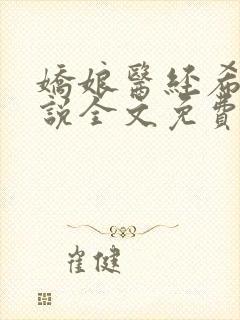 嬌娘醫經希
說全文免費
崔健